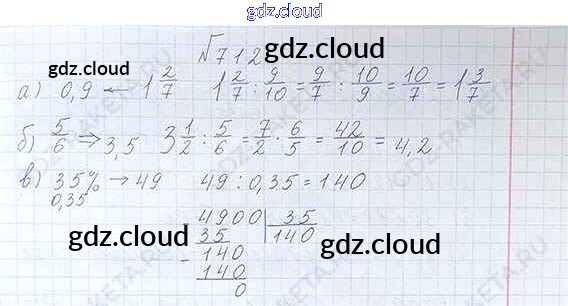 gdz.cloud
√712
gdz.cloud gdz.cloud
а) 0,9 ← 1 2/7 1 2/7 : 9/10 = 9/7 : 10/9 = 10/7 = 1 3/7
б) 5/6 ⇒ 3,5 3 1/2 : 5/6 = 7/2 · 6/5 = 42/10 = 4,2
в) 35% → 49 49 : 0,35 = 140
0,35
4900 | 35
35 140
- 140
140
0
gdz.cloud gdz.cloud